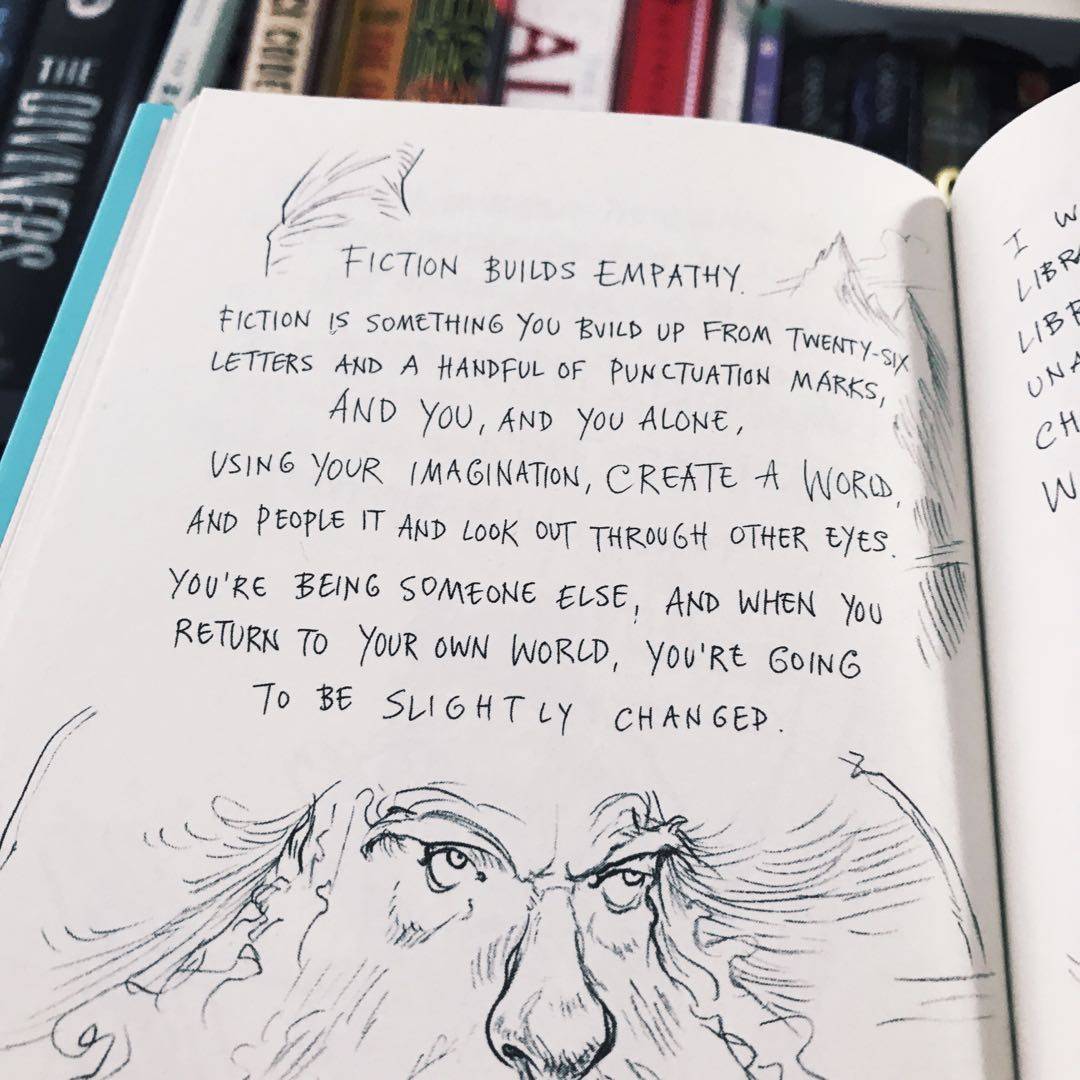 THE DIVINERS
AL
FICTION BUILDS EMPATHY.
FICTION IS SOMETHING YOU BUILD UP FROM TWENTY-SIX
LETTERS AND A HANDFUL OF PUNCTUATION MARKS,
AND YOU, AND YOU ALONE,
USING YOUR IMAGINATION, CREATE A WORLD,
AND PEOPLE IT AND LOOK OUT THROUGH OTHER EYES.
YOU'RE BEING SOMEONE ELSE, AND WHEN YOU
RETURN TO YOUR OWN WORLD, YOU'RE GOING
TO BE SLIGHTLY CHANGED.
I W
LIBRA
LIBR
UNA
CH
W